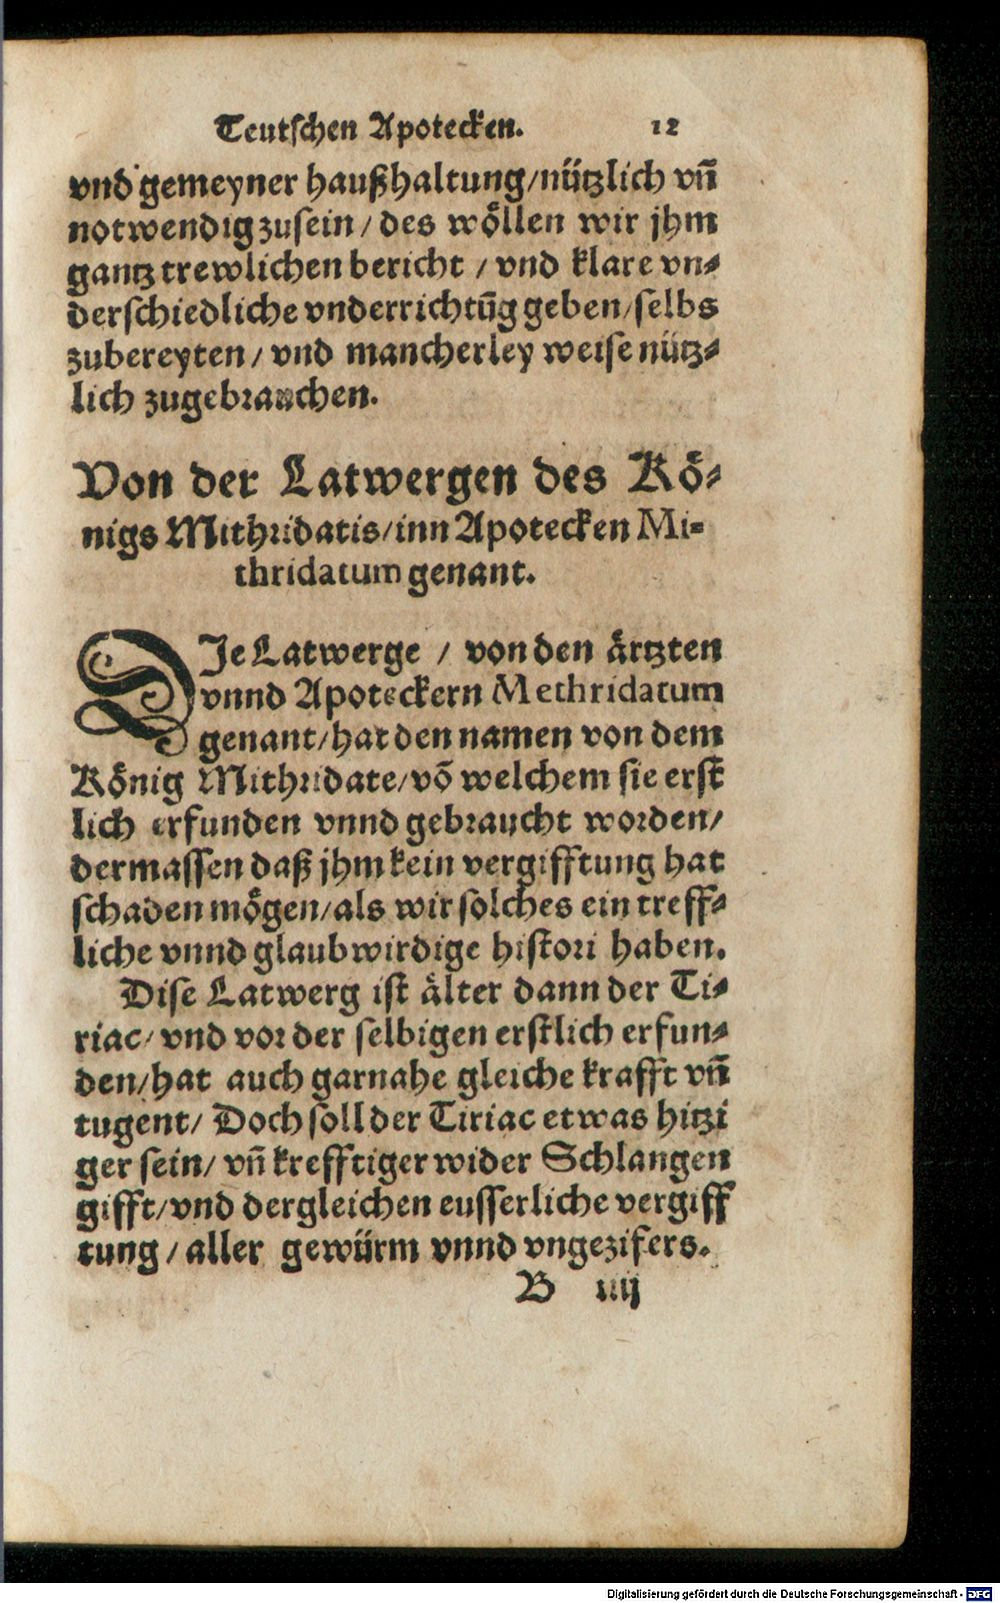 Teutſchen Apotecken. 12
vnd gemeyner haußhaltung/nützlich vñ
notwendig zuſein/ des wöllen wir jhm
gantz trewlichen bericht / vnd klare vn⸗
derſchiedliche vnderrichtũg geben/ſelbs
zubereyten/ vnd mancherley weiſe nütz⸗
lich zugebrauchen.
Von der Latwergen des Kö⸗
nigs Mithridatis/inn Apotecken Mi⸗
thridatum genant.
DJe Latwerge / von den ärtzten
vnnd Apoteckern Methridatum
genant/hat den namen von dem
König Mithridate/võ welchem ſie erſt
lich erfunden vnnd gebraucht worden/
dermaſſen daß jhm kein vergifftung hat
ſchaden mögen/als wir ſolches ein treff⸗
liche vnnd glaubwirdige hiſtori haben.
Diſe Latwerg iſt älter dann der Ti⸗
riac/ vnd vor der ſelbigen erſtlich erfun⸗
den/hat auch garnahe gleiche krafft vñ
tugent/ Doch ſoll der Tiriac etwas hitzi
ger ſein/ vñ krefftiger wider Schlangen
gifft/vnd dergleichen euſſerliche vergiff
tung / aller gewürm vnnd vngezifers.
B iiij
Digitalisierung gefördert durch die Deutsche Forschungsgemeinschaft - DFG